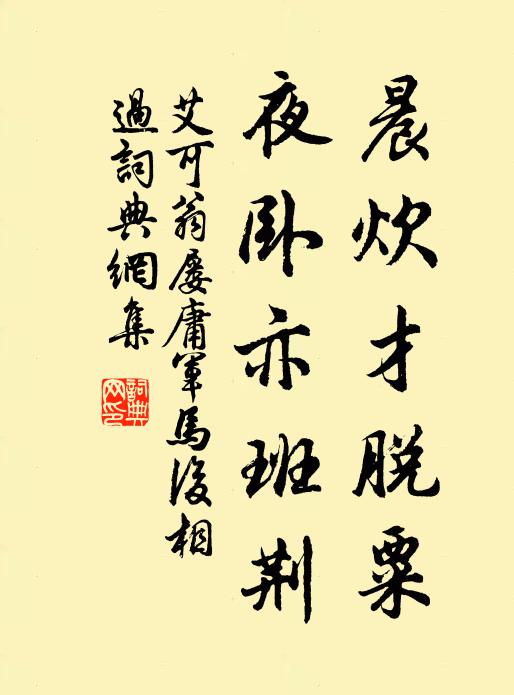 晨炊才脫粟
夜卧亦班荆
艾可翁屡庸軍馬後相
過詞典網集
詞典網印